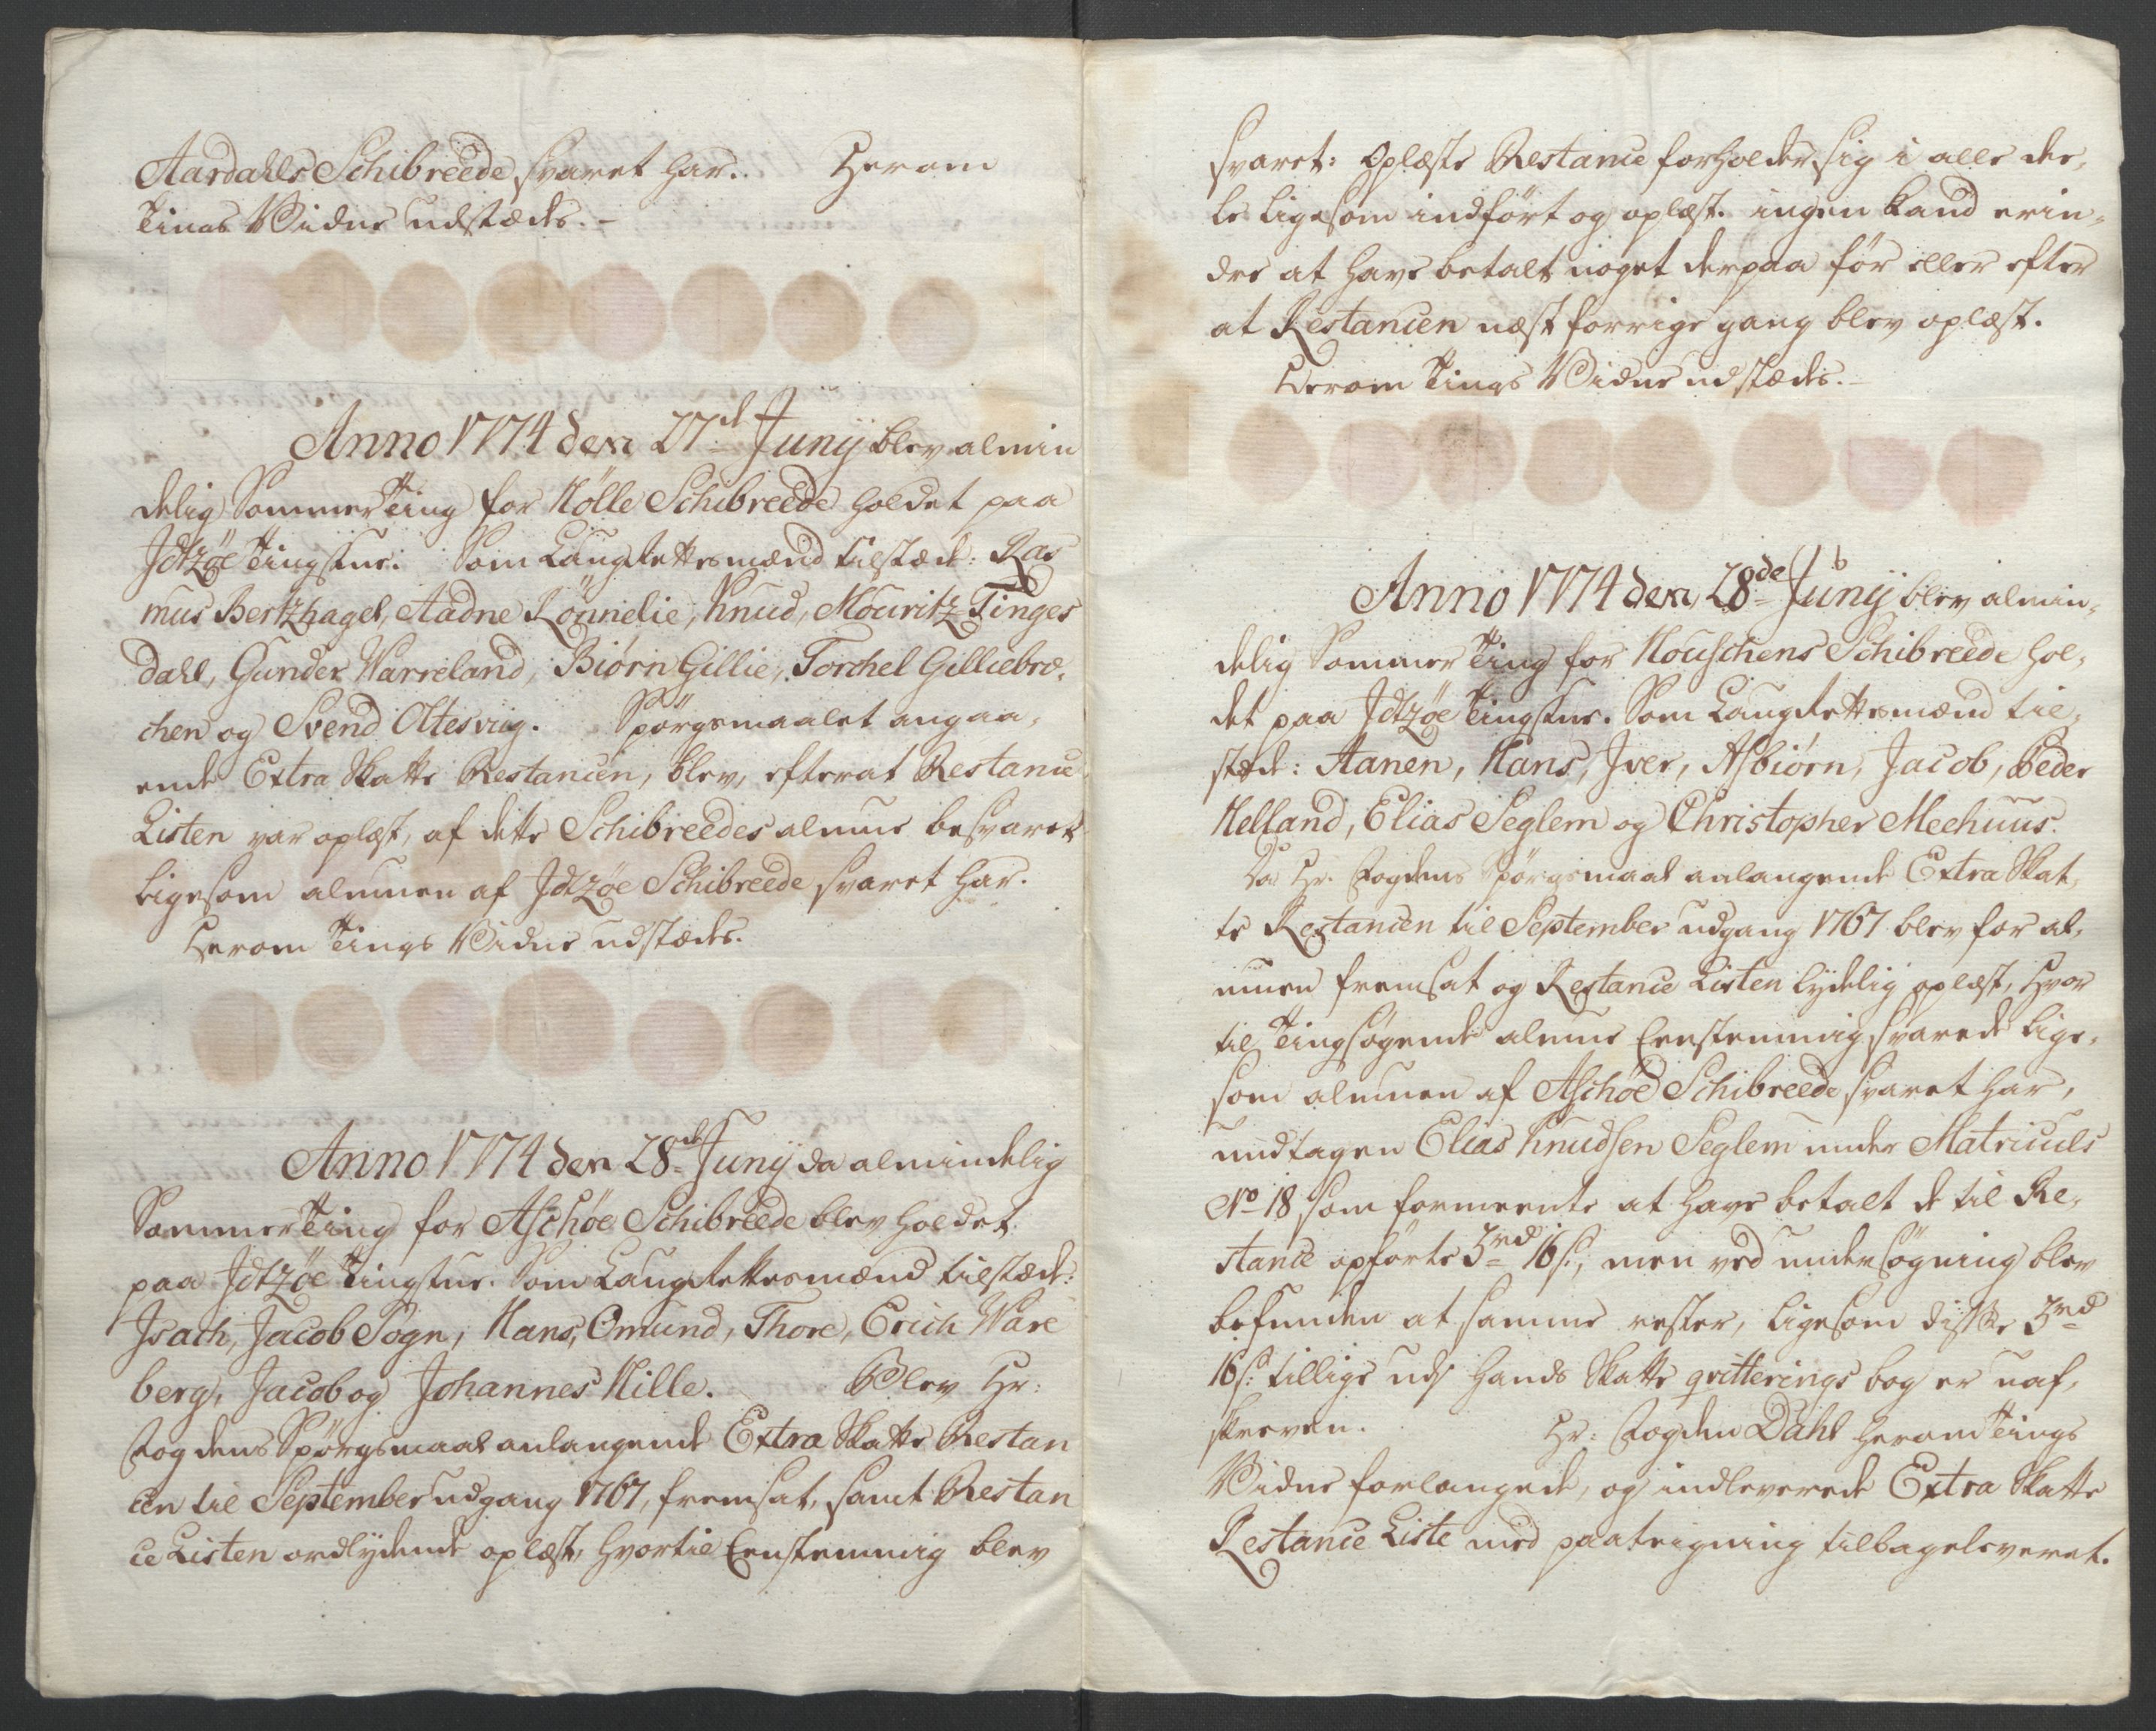 Aardahls Schibreede svaret har. Herom
Tings Vidne udstædes.
Anno 1774 den 27d Junij blev almin
delig Sommer Ting for Hölle Schibreede holdet paa
Idtzöe Tingstue. Som Laugrettesmænd tilstæde: Ras
mus Bertzhagel, Aadne Lönnelie, Knud, Mouritz Tinges
dahl, Gunder Warreland, Biørn Gillie, Torchel Gilliebre,
chen og Svend Oltesviig. Spörgsmaalet angaa,
ende Extra Skatte Restancen, blev, efterat Restance
Listen var oplæst, af dette Schibreedes almue besvaret
ligesom almuen af Idtzöe Schibreede svaret har.
Herom Tings Vidne udstædes.
Anno 1774 den 28d Junij da almindelig
Sommer Ting for Aschöe Schibreede blev holdet
paa Idtzöe Tingstue. Som Laugrettesmænd tilstæde:
Isach, Jacob Sögn, Hans, Omund, Thore, Erich Ware
berg, Jacob og Johannes Hille. Blev Hr:
Fogdens Spörgsmaal anlangende Extra Skatte Restan
cen til September udgang 1767, fremsat, samt Restan
ce Listen ordlydende oplæst, hvortil Eenstemmig blev
svaret: Oplæste Restance forholder sig i alle dee,
le ligesom indført og oplæst. ingen kand erin,
dre at have betalt noget derpaa før eller efter
at Restancen næst forrige gang blev oplæst.
Herom Tings Vidne udstædes.
Anno 1774 den 28de Junij blev almin,
delig Sommer Ting for Houschens Schibreede hol,
det paa Idtzöe Tingstue. Som Laugrettesmænd til,
stæde: Aanen, Hans, Iver, Asbiörn, Jacob, Peder
Helland, Elias Seglem og Christopher Meehuus.
Da Hr. Fogdens Spörgsmaal anlangende Extra Skat,
te Restancen til September udgang 1767 blev for al,
muen fremsat og Restance Listen lydelig oplæst, hvor
til Tingsøgende almue Eenstemmig svarede lige,
som almuen af Aschöe Schibreede svaret har,
undtagen Elias Knudsen Seglem under Matriculs
No 18 som formeente at have betalt de til Re,
stance opførte 3rd 16s:, men ved undersögning blev
befunden at samme rester, ligesom disse 3rd
16s: tillige udj hands Skatte qvitterings bog er uaf,
skreven. Hr: Fogden Dahl herom Tings
Vidne forlangede, og indleverede Extra Skatte
Restance Liste med paateigning tilbageleveret.